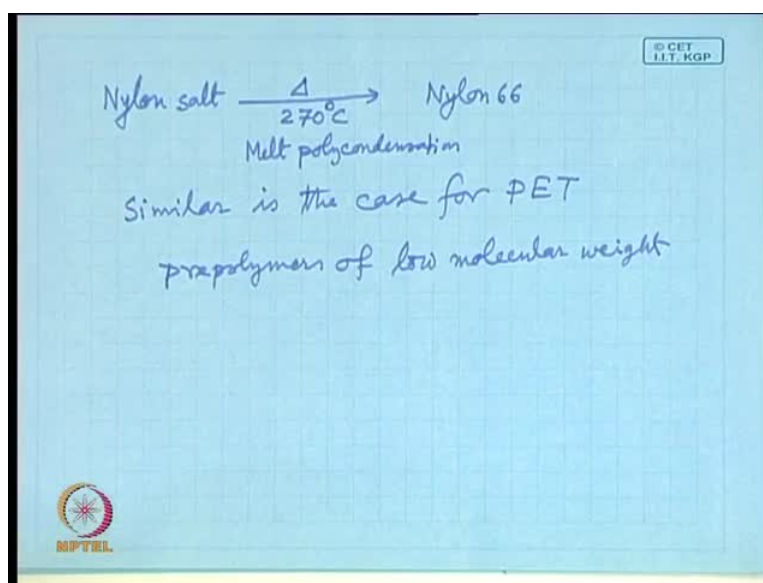 © CET
I.I.T. KGP
Nylon salt Δ Nylon 66
270°C
Melt polycondensation
Similar is the case for PET
prepolymers of low molecular weight
NPTEL